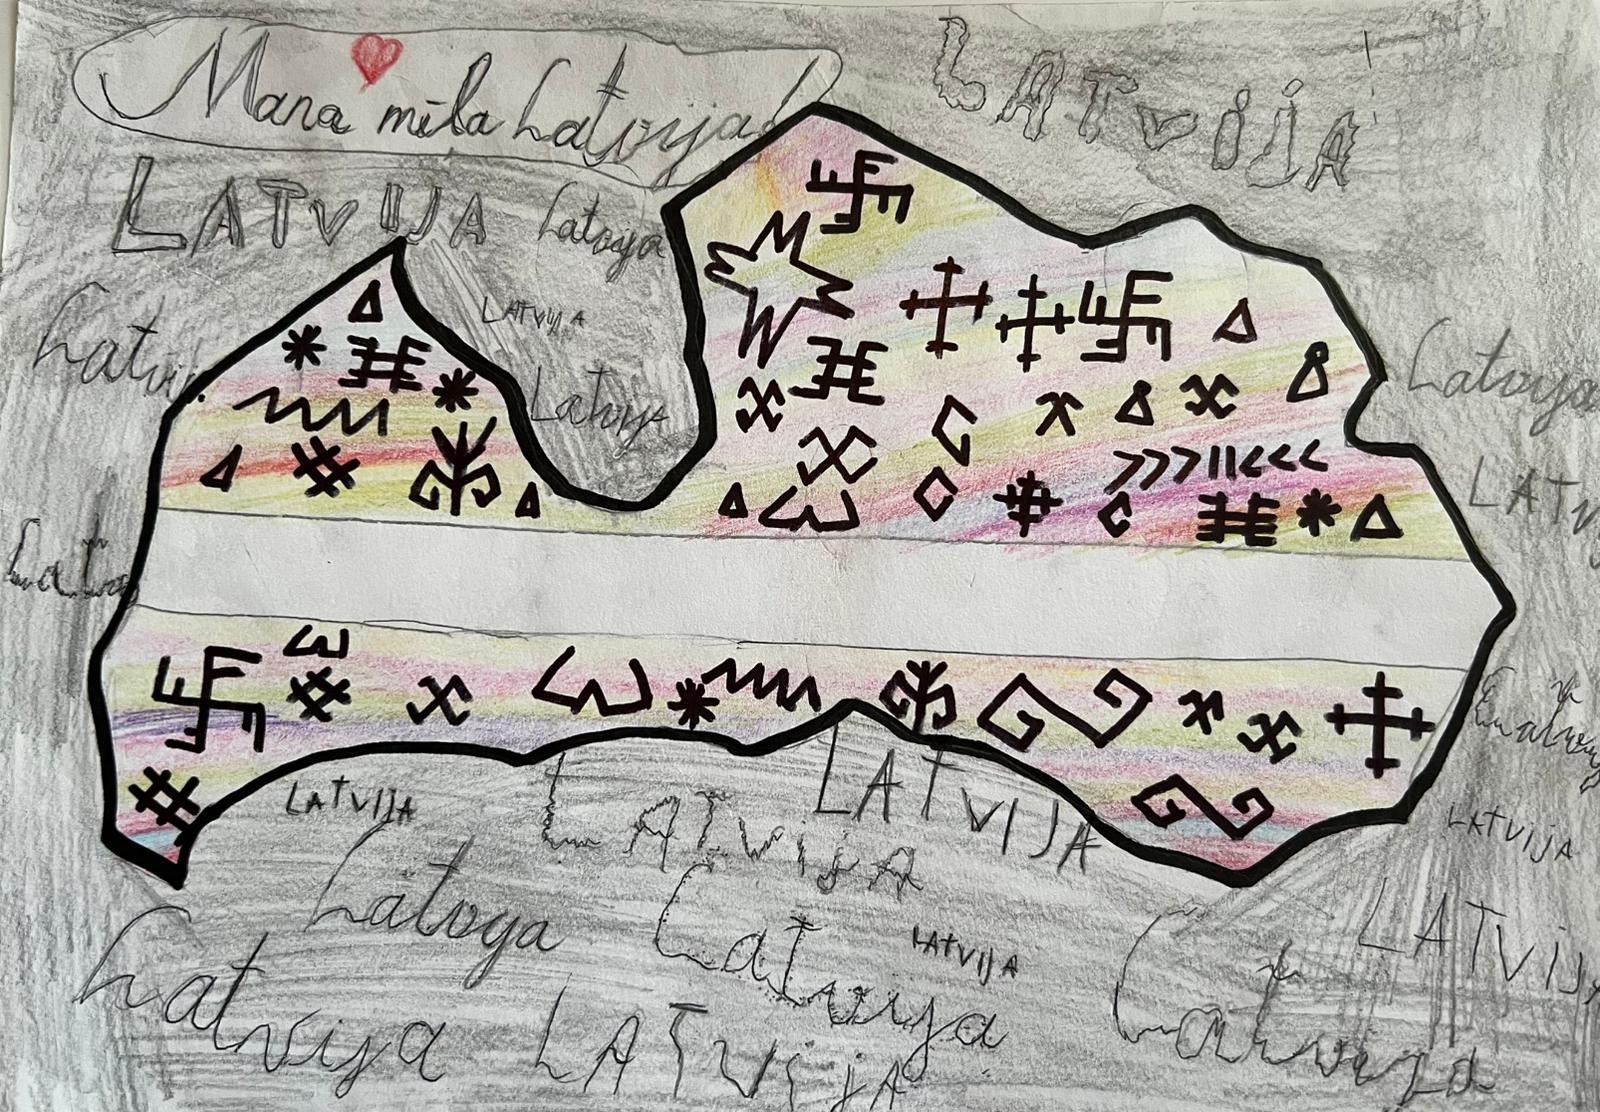 Mana mīļa Latvija!
LATVIJA
LATVIJA
Latvija
LATVIJA
Latvija
Latvija
LATVIJA
Latvija
LATVIJA
LATVIJA
LATVIJA
LATVIJA
Latvija
Latvija
LATVIJA
LATVIJA
Latvija
LATVIJA
Latvija